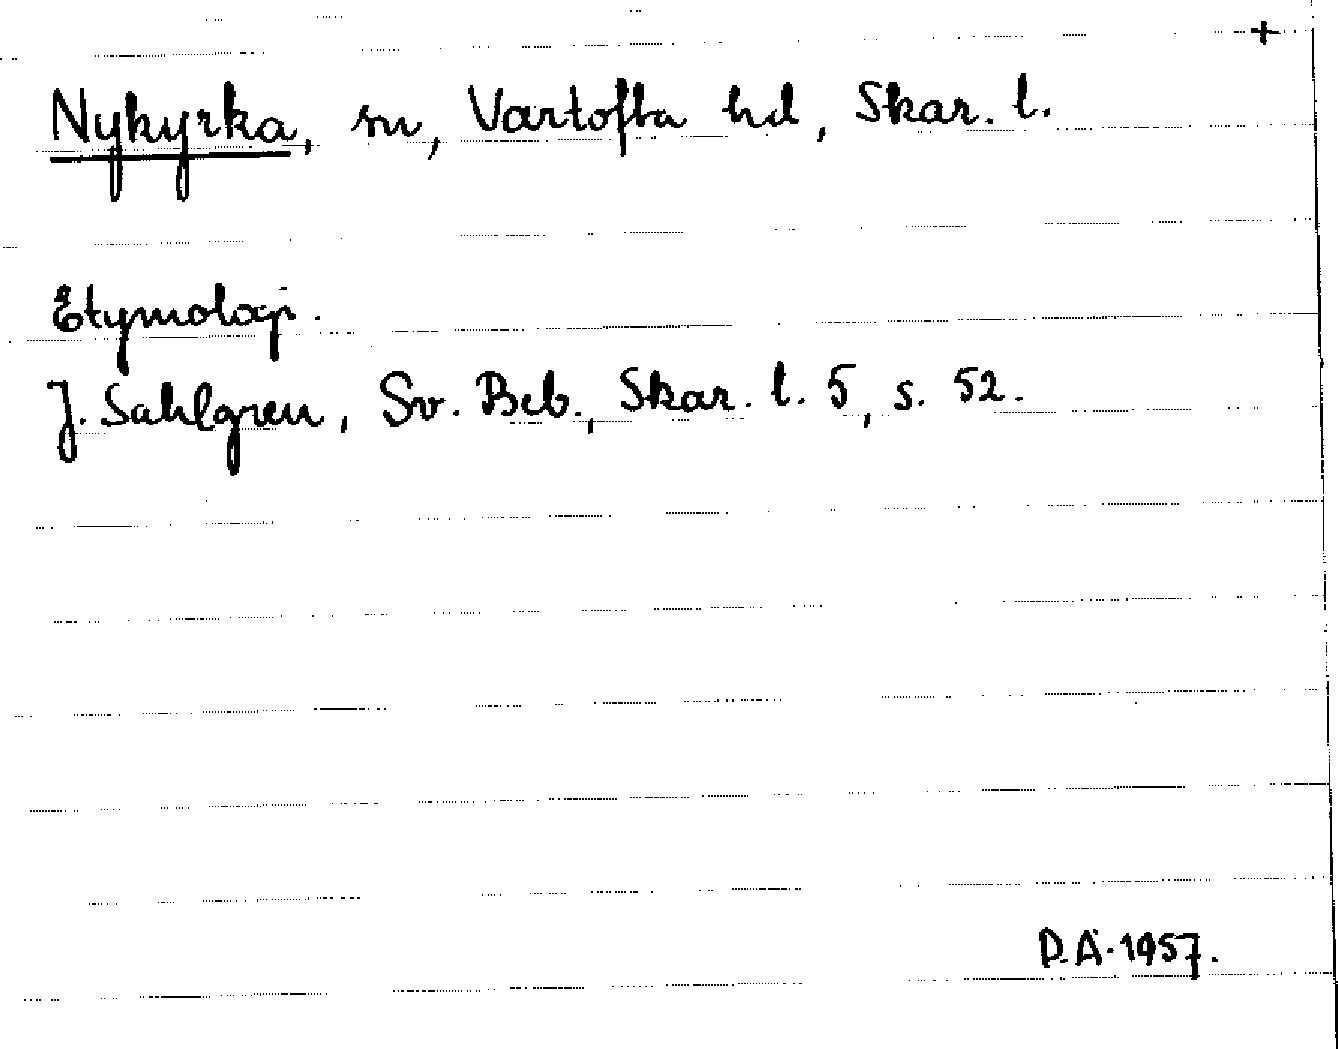 +
Nykyrka, sn, Vartofta hd, Skar. l.
Etymologi.
J. Sahlgren, Sv. Beb., Skar. l. 5, s. 52.
D.A. 1957.